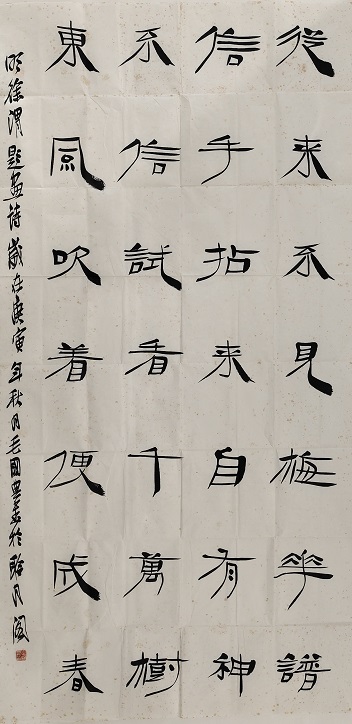 從来不見梅華譜
信手拈来自有神
不信試看千萬樹
東風吹着便成春
明徐渭題画诗歲在庚寅年秋月毛國典書於聆月閣